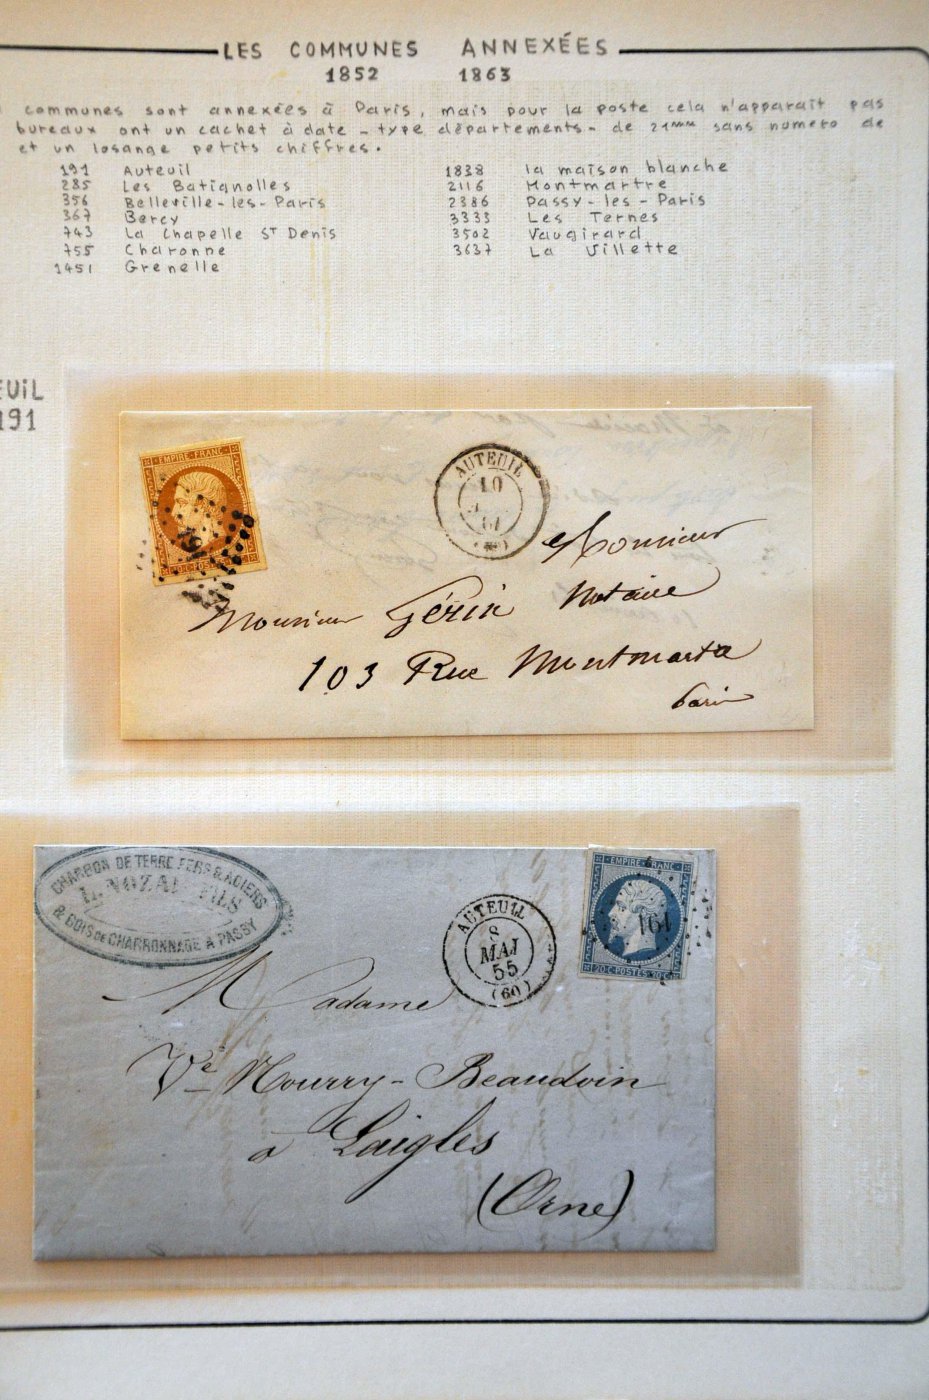 LES COMMUNES ANNEXÉES
1852 1863
communes sont annexées à Paris, mais pour la poste cela n'apparait pas
bureaux ont un cachet à date - type départements - de 21mm sans numero de
et un losange petits chiffres.
191 Auteuil
285 Les Batignolles
356 Belleville-les-Paris
367 Bercy
743 La Chapelle ST Denis
755 Charonne
1451 Grenelle
1838 la maison blanche
2116 Montmartre
2386 Passy-les-Paris
3333 Les Ternes
3502 Vaugirard
3637 La Villette
EUIL
191
EMPIRE FRANC
AUTEUIL
10
61
(60)
Monsieur
Monsieur Gérin Notaire
103 Rue Montmartre
Paris
CHARBON DE TERRE FERS & ACIERS
L. NOZAL FILS
& BOIS DE CHARRONNAGE À PASSY
AUTEUIL
8
MAI
55
(60)
EMPIRE FRANC
191
20 C. POSTES 20 C.
Madame
Ve Nourry-Beaudoin
à Laigles
(Orne)